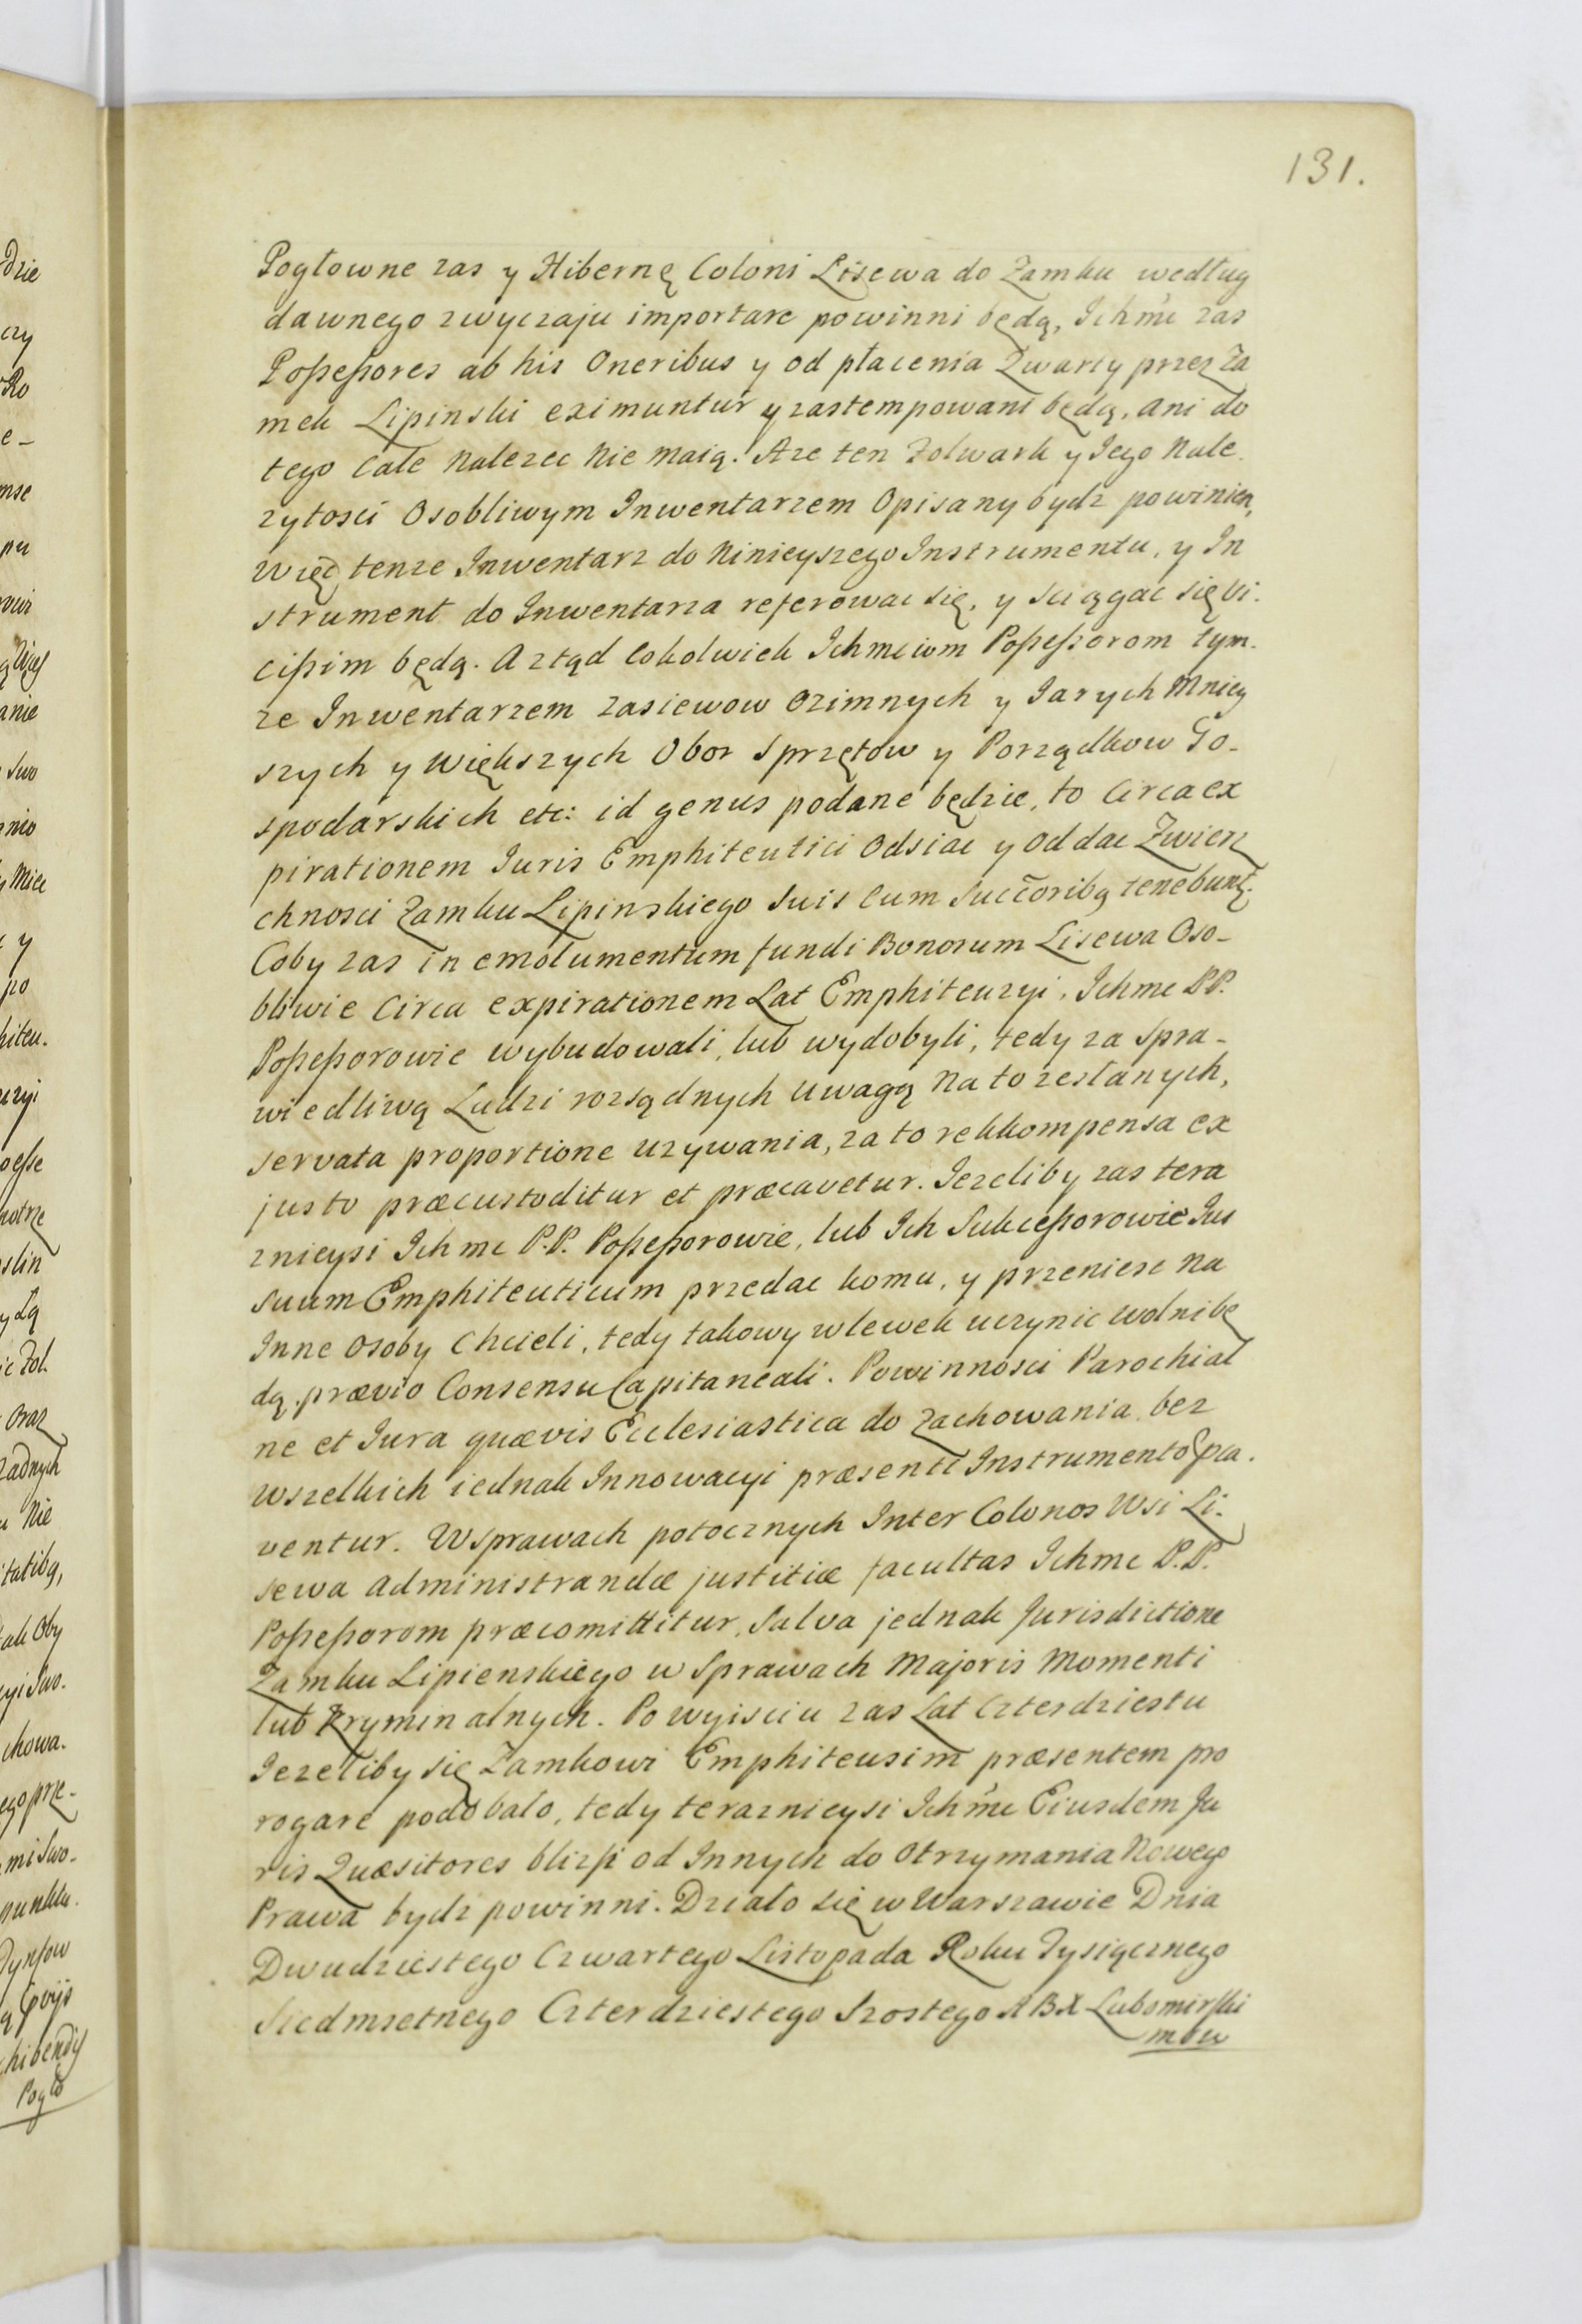 131.
Pogłowne zas y Hibernę Coloni Lisewa do Zamku według
dawnego zwyczaju importare powinni będą, Ichm̃c zas
Possessores ab his Oneribus y od płacenia Kwarty przez Za
mek Lipinski eximuntur y zastempowani będą, ani do
tego Cale Nalezec Nie maią. Aze ten Folwark y Iego Nale
zytosci Osobliwym Inwentarzem Opisany bydz powinien,
Więc tenze Inwentarz do Ninieyszego Instrumentu, y In
strument do Inwentarza referowac się, y sciągac się vi.
cissim będą. A ztąd Cokolwiek Ichmciom Possessorom tym.
ze Inwentarzem zasiewow Ozimnych y Iarych Mniey
szych y Większych Obor Sprzętow y Porządkow Go-
spodarskich etc: id genus podane będzie, to Circa ex
pirationem Iuris Emphiteutici Odsiac y Oddac Zwierz
chnosci Zamku Lipinskiego Suis Cum Succ̃oribꝫ tenebunt.
Coby zas in emolumentum fundi Bonorum Lisewa Oso-
bliwie Circa expirationem Lat Emphiteuzyi, Ichmc P.P.
Possessorowie wybudowali, lub wydobyli, tedy za Spra-
wiedliwą Ludzi rozsądnych Uwagą Na to zesłanych,
servata proportione uzywania, za to rekkompensa ex
justo præcustoditur et præcavetur. Iezeliby zas tera
znieysi Ichmc P.P. Possessorowie, lub Ich Sukcessorowie Ius
suum Emphiteuticum przedac komu, y przeniesc Na
Inne Osoby Chcieli, tedy takowy wlewek uczynic wolni bę
dą. prævio Consensu Capitaneali. Powinnosci Parochial
ne et Iura quævis Ecclesiastica do zachowania bez
wszelkich iednak Innowacyi præsenti Instrumento præ.
ventur. W sprawach potocznych Inter Colonos Wsi Li.
sewa administrandæ justitiæ facultas Ichmc P.P.
Possessorom præcomittitur, Salva jednak Jurisdictione
Zamku Lipienskiego w Sprawach Majoris Momenti
lub Kryminalnych. Po wyisciu zas Lat Czterdziestu
Iezeliby się Zamkowi Emphiteusim præsentem pro
rogare podobało, tedy teraznieysi Ichm̃c Eiusdem Ju
ris Quæsitores blizsi od Innych do Otrzymania Nowego
Prawa bydz powinni. Działo się w Warszawie Dnia
Dwudziestego Czwartego Listopada Roku Tysiącznego
Siedmsetnego Czterdziestego Szostego A B X Lubomirski
mbw